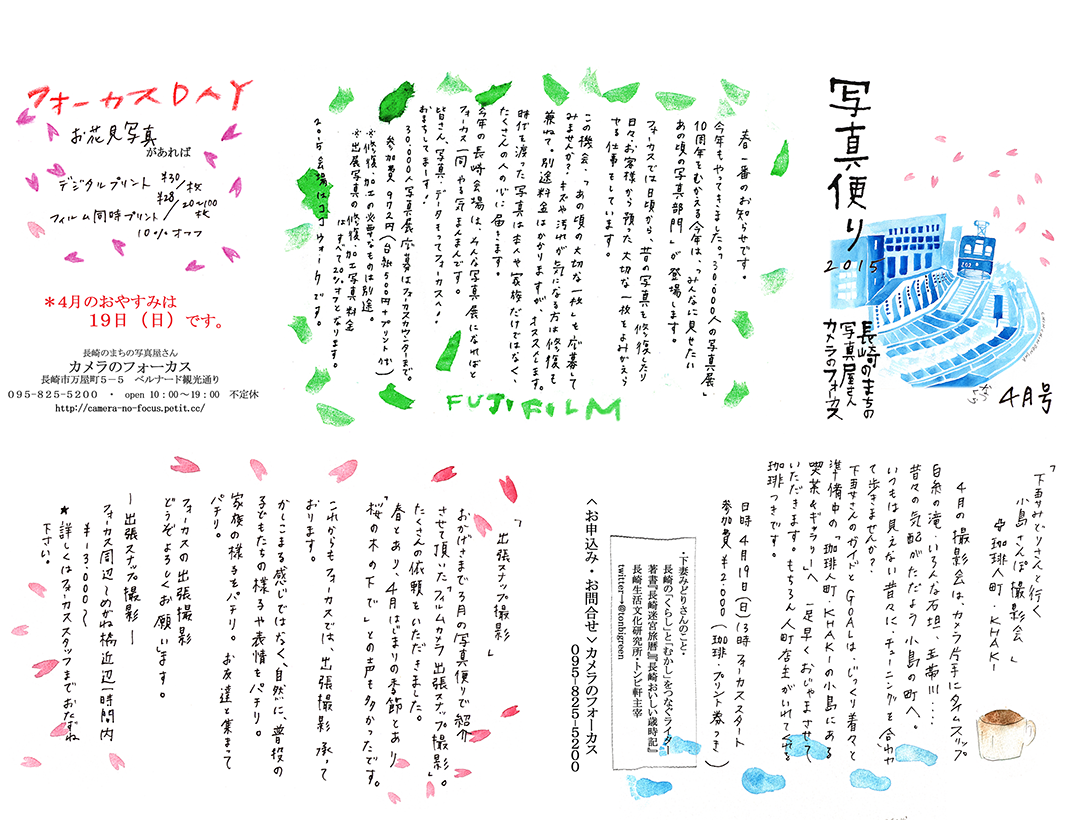 写真便り
2015
長崎のまちの
写真屋さん
カメラのフォーカス
4月号
春一番のお知らせです。
今年もやってきました。「30,000人の写真展」
10周年をむかえる今年は、「みんなに見せたい
あの頃の写真部門」が登場します。
フォーカスでは日頃から昔の写真を修復したり
日々、お客様から預った大切な一枚をよみがえら
せる仕事をしています。
この機会、「あの頃の大切な一枚」を応募して
みませんか？キズや汚れが気になる方は修復も
兼ねて。別途料金はかかりますが、オススメします。
時代を渡った写真は本人や家族だけではなく、
たくさんの人の心に届きます。
今年の長崎会場は、そんな写真展になればと
フォーカス一同やる気まんまんです。
皆さん、写真・データもってフォーカスへ♪
おまちしてまーす！
30,000人写真展応募はフォーカスカウンターまで。
参加費 972円（台紙500円+プリント代）
※修復・加工の必要なものは別途。
※出展写真の修復、加工写真料金
はすべて20%オフとなります。
2015会場はココウォークです。
FUJIFILM
フォーカスDAY
お花見写真
があれば
デジタルプリント ¥30/枚
¥28/20〜100枚
フィルム同時プリント
10%オフ
＊4月のおやすみは
19日（日）です。
長崎のまちの写真屋さん
カメラのフォーカス
長崎市万屋町5－5 ベルナード観光通り
095-825-5200 ・ open 10：00〜19：00 不定休
http://camera-no-focus.petit.cc/
「下妻みどりさんと行く
小島さんぽ撮影会」
珈琲人町・KHAKI
4月の撮影会は、カメラ片手にタイムスリップ
白糸の滝・いろんな石垣、玉帯川・・・・
昔々の気配がただよう小島の町へ。
いつもは見えない昔々に、チューニングを合わせ
て歩きませんか？
下妻さんのガイドとGOALは、じっくり着々と
準備中の「珈琲人町・KHAKI」の小島にある
喫茶&ギャラリーへ 一足早くおじゃまさせて
いただきます。もちろん人町店主がいれてくれる
珈琲つきです。
日時 4月19日（日）13時 フォーカススタート
参加費 ¥2,000（珈琲・プリント券つき）
・下妻みどりさんのこと・
長崎の「くらし」と「むかし」をつなぐライター
著書『長崎迷宮旅暦』『長崎おいしい歳時記』
長崎生活文化研究所・トンビ軒主宰
twitter→@tonbigreen
＜お申込み・お問合せ＞カメラのフォーカス
095-825-5200
「出張スナップ撮影」
おかげさまで3月の写真便りで紹介
させて頂いた「フィルムカメラ出張スナップ撮影。」
たくさんの依頼をいただきました。
春とあり、4月はじまりの季節とあり、
「桜の木の下で」との声も多かったです。
これからもフォーカスでは、出張撮影承って
おります。
かしこまる感じではなく、自然に、普段の
子どもたちの様子や表情をパチリ。
家族の様子をパチリ。お友達と集まって
パチリ。
フォーカスの出張撮影
どうぞよろしくお願いします。
ー出張スナップ撮影ー
フォーカス周辺〜めがね橋近辺一時間内
¥13,000〜
★詳しくはフォーカススタッフまでおたずね
下さい。